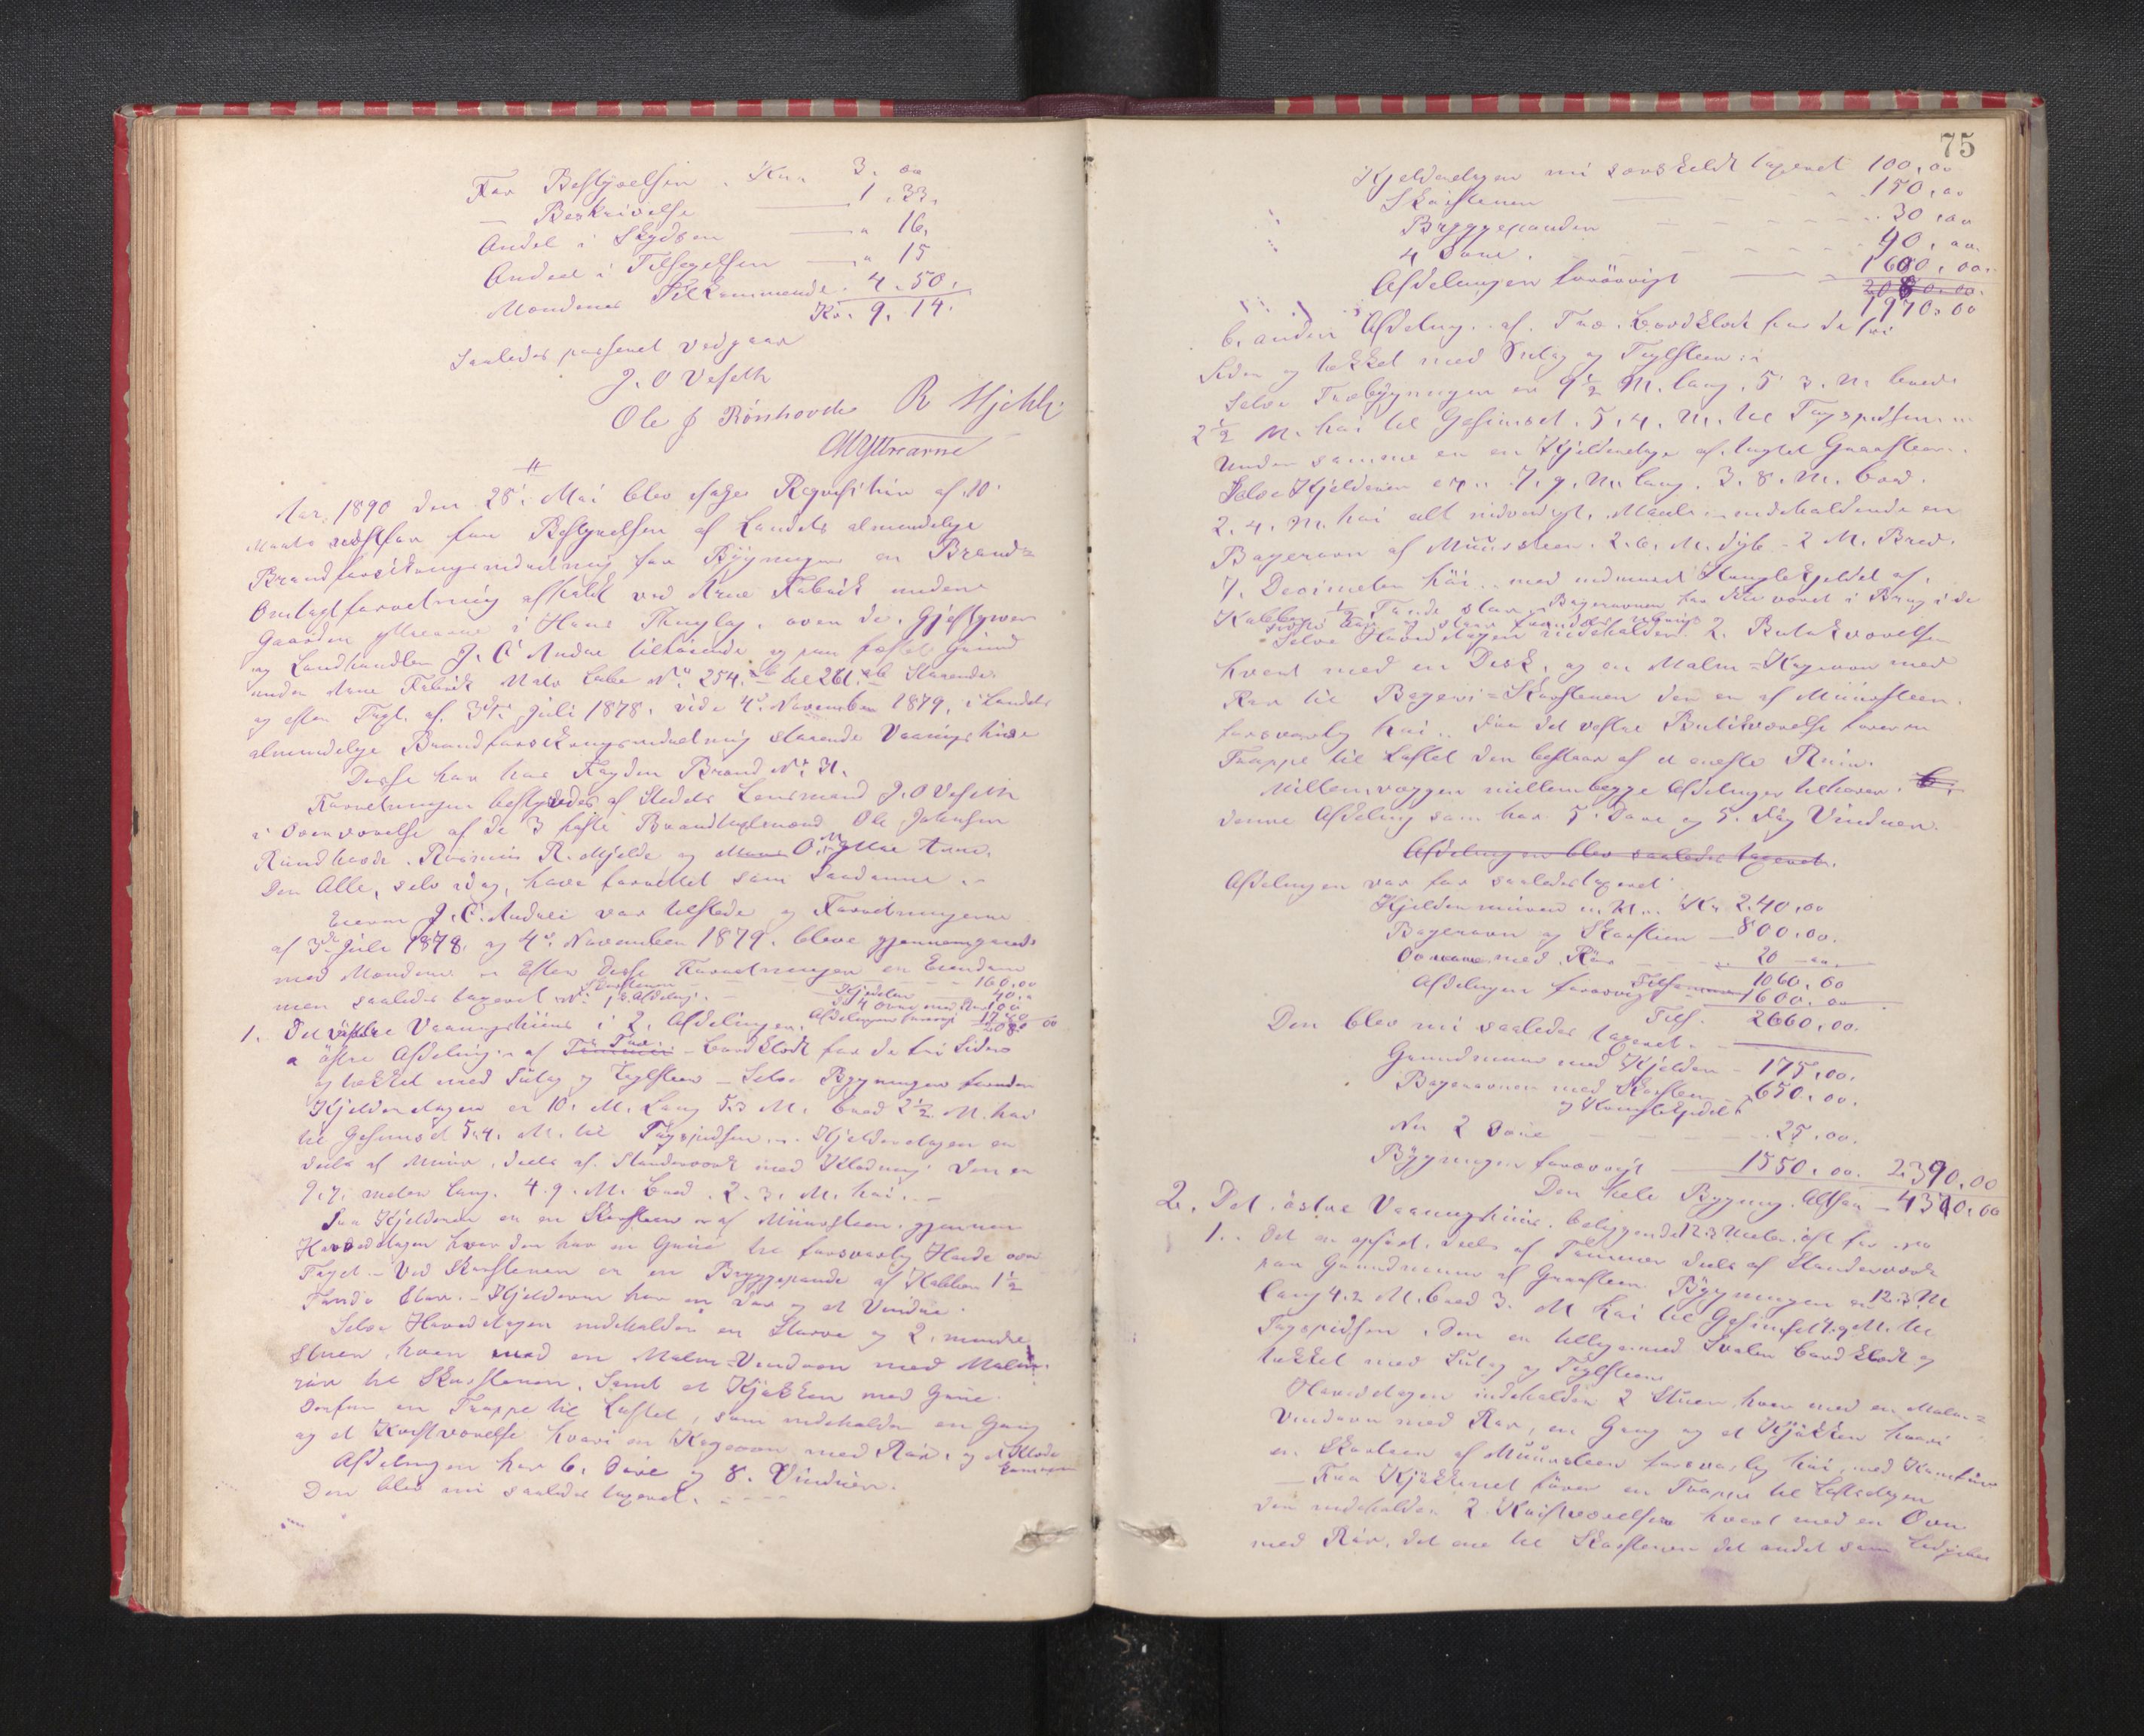 For Bestyrelsen . Kr. 3. 00
— Beskrivelse — 1. 33.
Andel i Skydsen — " 16.
Andeel i Tilsigelsen — " 15
Mændenes Tilkommende . 4. 50.
Kr. 9. 14.
Saaledes passeret vedgaar
J. O Veseth
Ole J Rönhovde R Mjelde
Aar 1890 den 28' Mai blev efter Reqvisition af 10'
Maats næstfør fra Bestyrelsen af Landets almindelige
Brandforsikringsindretning for Bygninger en Brand=
Omtaxtforretning afholdt ved Arne Fabrik under
Gaarden Yttrearne i Hans Thinglag, over de, Gjestgiver
og Landhandler J. C. Andue tilhørende og paa fæstet Grund
under Arne Fabrik Matr Løbe No 254. til 261. staaende
og efter Taxt. af. 3die Juli 1878. vide 4de November 1879, i Landets
almindelige Brandforsikringsindretning staaende Vaaningshuse
Disse har hos Fogden Brand No. 31.
Forretningen bestyredes af Stedets Lensmand J. O Veseth
i Overværelse af de 3 faste Brandtaxtmænd Ole Johnsen
Röndhovde . Rasmus R. Mjelde og O. M. Yttre Arne.
Den Alle, selv idag, have forrettet som saadanne . -
Eieren J. C. Andue var tilstede og Forretningerne
af 3de Juli 1878. og 4de November 1879. bleve gjennemgaaede
med Mændene . Efter disse Forretninger er Eiendom
men saaledes taxeret No 1, a Afdeling. Skorstenen 160.00
Kjelderen 40.
de 4 ovne med Rør 100
Afdelingen forøvrigt
1. Det vestre Vaaningshuus i 2. Afdelinger.
a östre Afdeling . af Træ. - bordklædt for de tri Sider
og tækket med Sutag og Taglsteen - Selve Bygningen foruden
Kjelderetagen er 10. M. Lang 5.3 M. bred 2½. M. høi
til Gesimset 5.4. M. til Tagspidsen . . Kjelderetagen er
deels af Muur, deels af Standerværk med Klædning. Den er
9.7. meter lang. 4.9. M. bred . 2. 3. M. høi. -
Fra Kjelderen er en Skorsteen af Muursteen, gjennem
Hovedetagen hvor den har en Grue til forsvarlig Høide over
Taget. - Ved Skorstenen er en Bryggepande af Kobber 1½
Tønde Stor. - Kjelderen har en Dør og et Vindue.
Selve Hovedetagen indeholder en Større og 2. mindre
Stuer, hver med en Malm-Vindovn med Malm-
rør til Skorstenen, Samt et Kjøkken med Grue
Derfra en Trappe til Loftet, som indeholder en Gang
og et Kvistværelse hvori en Kogeovn med Rør, og et Klædekammer
Afdelingen har 6. Döre og 8. Vinduer.
Den blev nu saaledes taxeret. - - - -
75
Kjelderetagen nu særskildt taxeret 100,00
Skorstenen - - - 150,00
Bryggepanden - - - 30,00
4 Ovne - - - 90,00
Afdelingen forövrigt — 1600,00.
1970.00
b. anden Afdeling . af. Træ. bordklædt paa de tri
Sider og tækket med Sutag og Taglsteen
Selve Træbygningen er 9½ M. lang, 5. 3. M. bred.
2½ M. høi til Gesimset. 5.4. M. til Tagspidsen
Under samme er en Kjelderetage af. hugget Graasteen.
Selve Kjelderen er 7.9. M. lang. 3. 8. M. bred.
2. 4. M. høi alt indvendigt Maal. indeholdende en
Bagerovn af Muursteen. 2.6. M. dyb - 2 M. Bred.
7. Decimeter höi . med indmuret Klinglekjedel af.
Kobber ½ Tønde stor. Bagerovnen har ikke været i Brug i de
- Selve Hovedetagen indeholder. 2. Butikværelser
hvert med en Disk, og en Malm=Kogeovn med
Rør til Bageri=Skorstenen den er af Muursteen.
forsvarlig høi .. Fra det vestre Butikværelse fører en
Trappe til Loftet den bestaar af et eneste Rum.
Mellemvæggen mellem begge Afdelinger tilhører.
denne Afdeling som har 5. Döre og 5. Fag Vinduer.
Afdelingen blev saaledes taxeret.
Afdelingen var før saaledes taxeret
Kjelder muren Kr 240,00
Bagerovn og Skorsteen — 800.00.
Ovnene med Rør - - 20 -
Tilsammen 1060,00
Afdelingen forøvrigt — 1600.00
Tils. 2660,00.
Den blev nu saaledes taxeret. -
Grundmuur med Kjelder - 175,00.
Bagerovnen med Skorsteen 650,00.
og Klinglekjedel
Nu 2 Ovne - - - 25.00.
Bygningen forøvrigt — 1550.00. 2390,00
Den hele Bygning. Altsaa - 4370.00
2. Det östre Vaaningshuus. beliggende 12.3 Meter öst for No
1.. Det er opført, deels af Tømmer deels af Standerværk
paa Grundmuur af Graasteen Bygningen er 12.3 M
lang 4.2 M. bred 3. M høi til Gesimset M. til
Tagspidsen. Den er tilligemed Svalen bordklædt og
tækket med Sutag og Taglsteen
Hovedetagen indeholder 2 Stuer hver med en Malm=
Vindovn med Rør, en Gang og et Kjökken hvori
en Skorsteen af Muursteen forsvarlig høi, med Komfur
- Fra Kjøkkenet fører en Trappe til Loftsetagen
den indeholder 2 Kvistværelser hvert med en Ovn
med Rør, det ene til Skorstenen det andet som